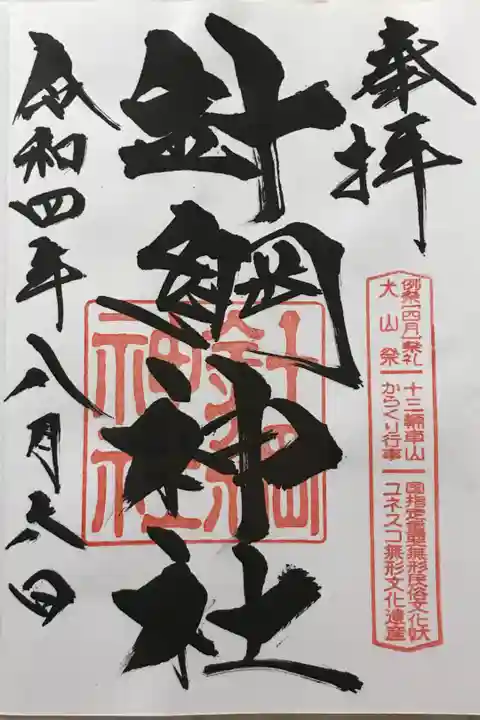 奉拝
例祭(四月)祭礼
犬山祭
十三輛車山
からくり行事
国指定重要無形民俗文化財
ユネスコ無形文化遺産
針綱神社
針綱
神社
令和四年八月六日